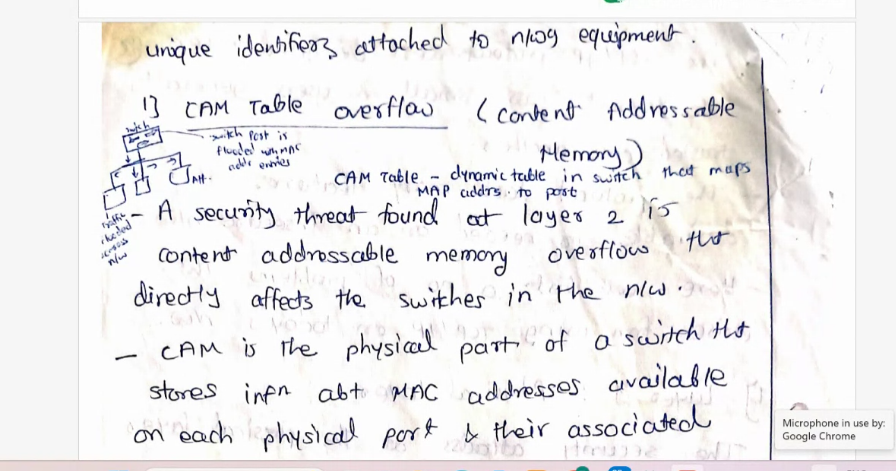 unique identifiers attached to n/wg equipment.
1] CAM Table overflow (Content Addressable Memory)
switch
switch Port is
flooded with MAC
addr entries
Att.
CAM Table - dynamic table in switch that maps
MAP addrs. to port
traffic
flooded
across
n/w
- A security threat found at layer 2 is
content addressable memory overflow tht
directly affects the swithes in the n/w.
- CAM is the physical part of a switch tht
stores infn abt MAC addresses available
on each physical port & their associated
Microphone in use by:
Google Chrome